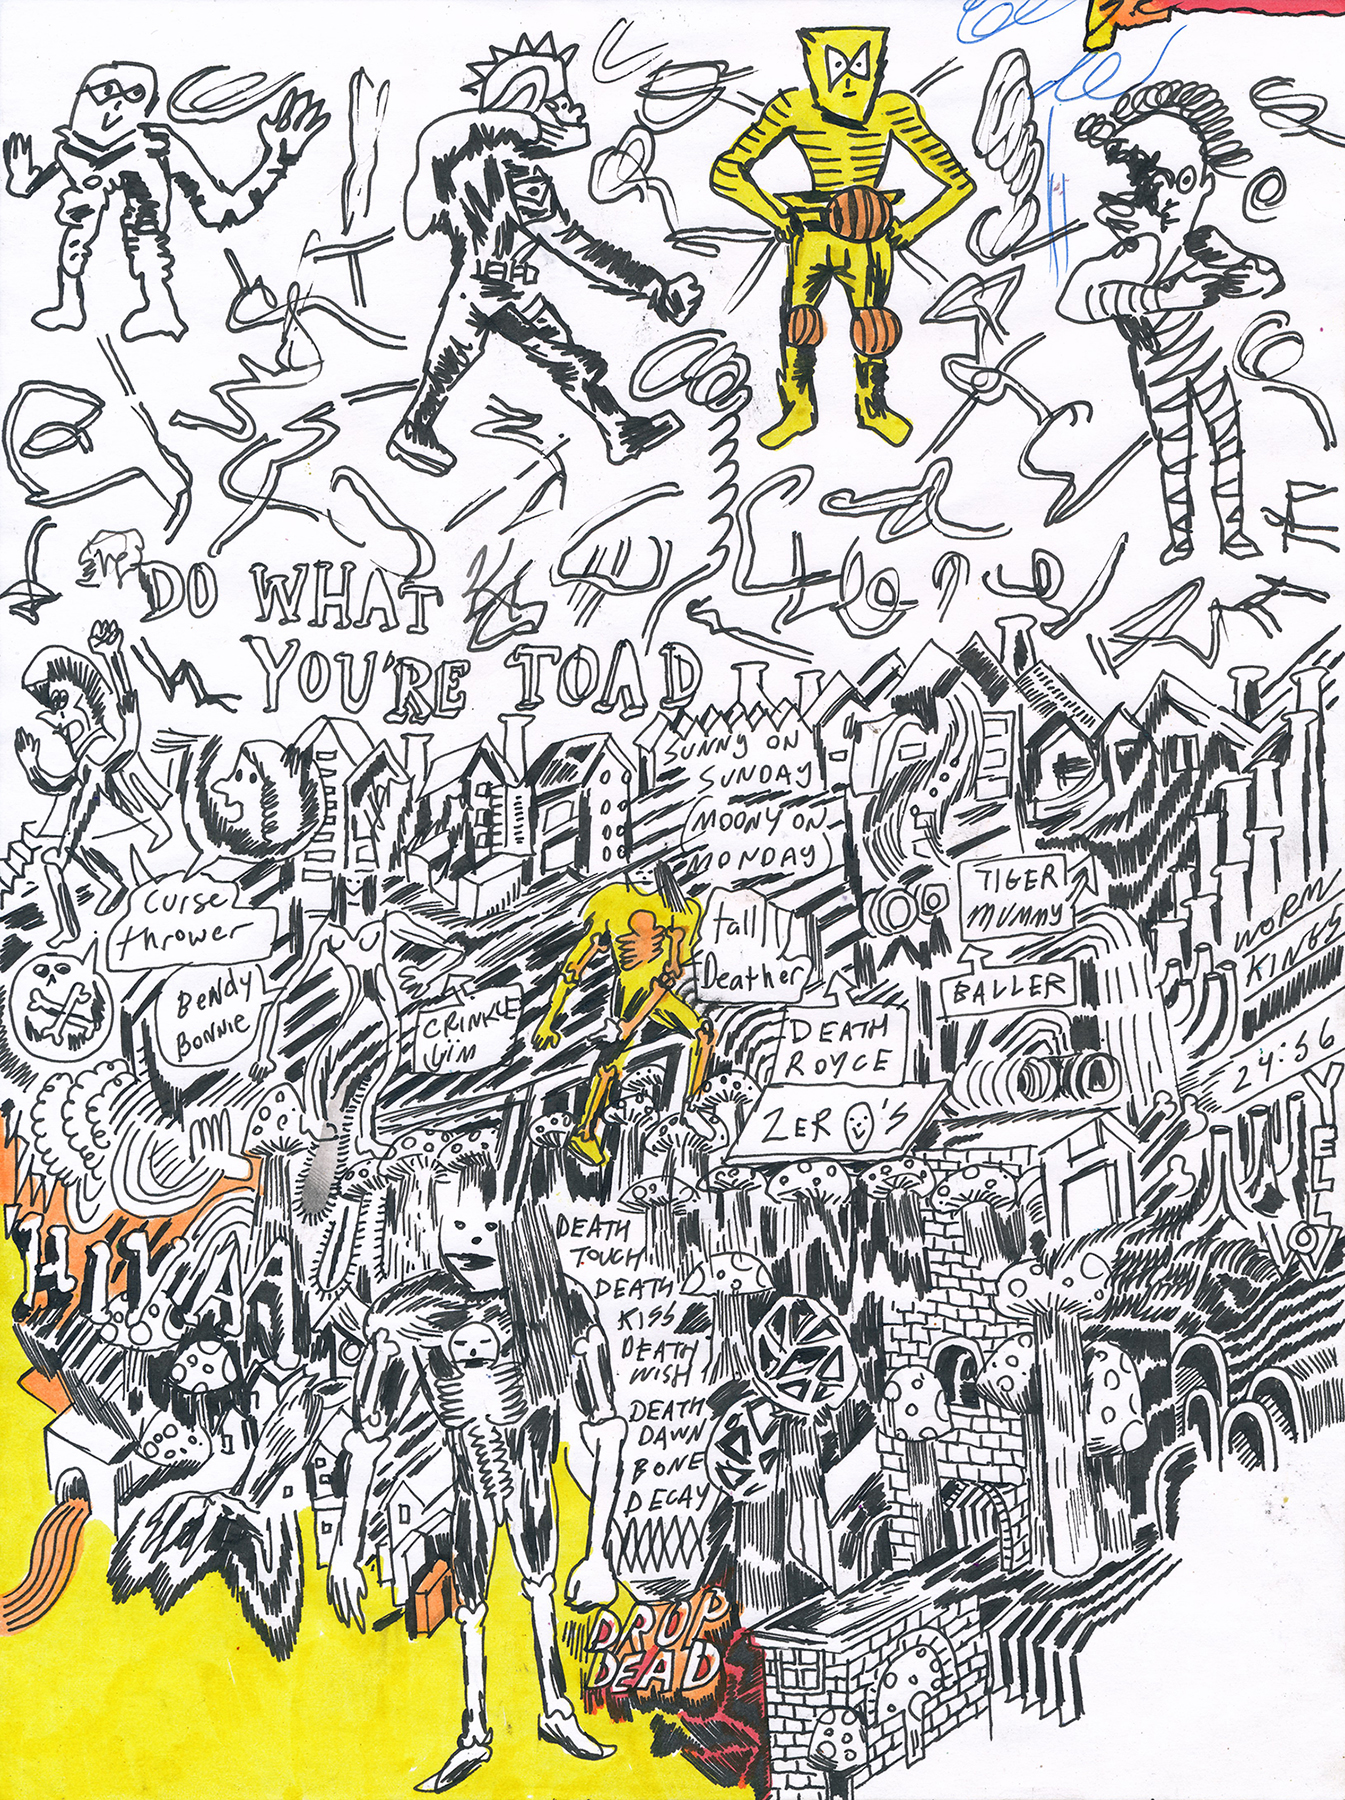 DO WHAT
YOU'RE TOAD
SUNNY ON
SUNDAY
(MOONY ON
MONDAY)
curse
thrower
TIGER
MUMMY
WORM
KINGS
fall
Deather
BENDY
BONNIE
CRINKLE
BALLER
DEATH
ROYCE
24:56
ZERO'S
YELLOW
HIYAA
DEATH
TOUCH
DEATH
KISS
DEATH
WISH
DEATH
DAWN
BONE
DECAY
DROP
DEAD